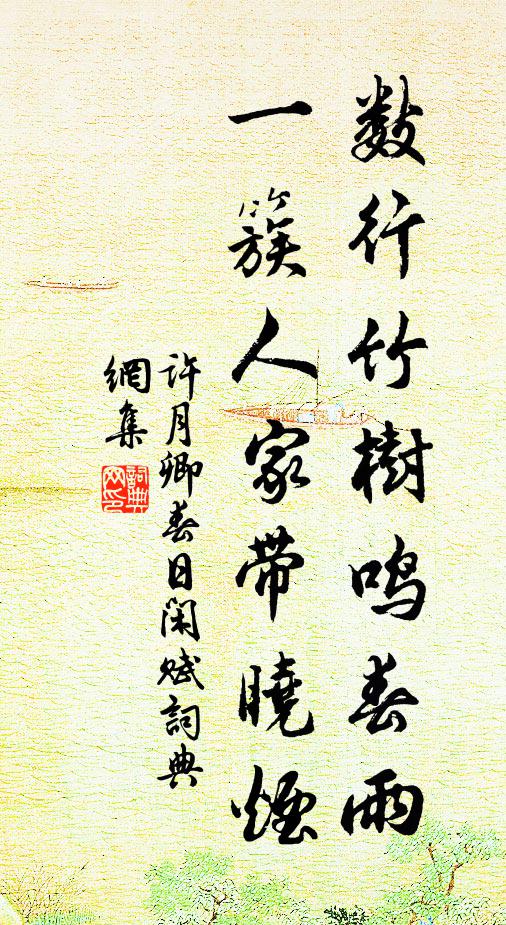 数行竹樹鸣春雨
一簇人家带曉煙
许月卿春日闲赋詞典
網集
詞典
网印